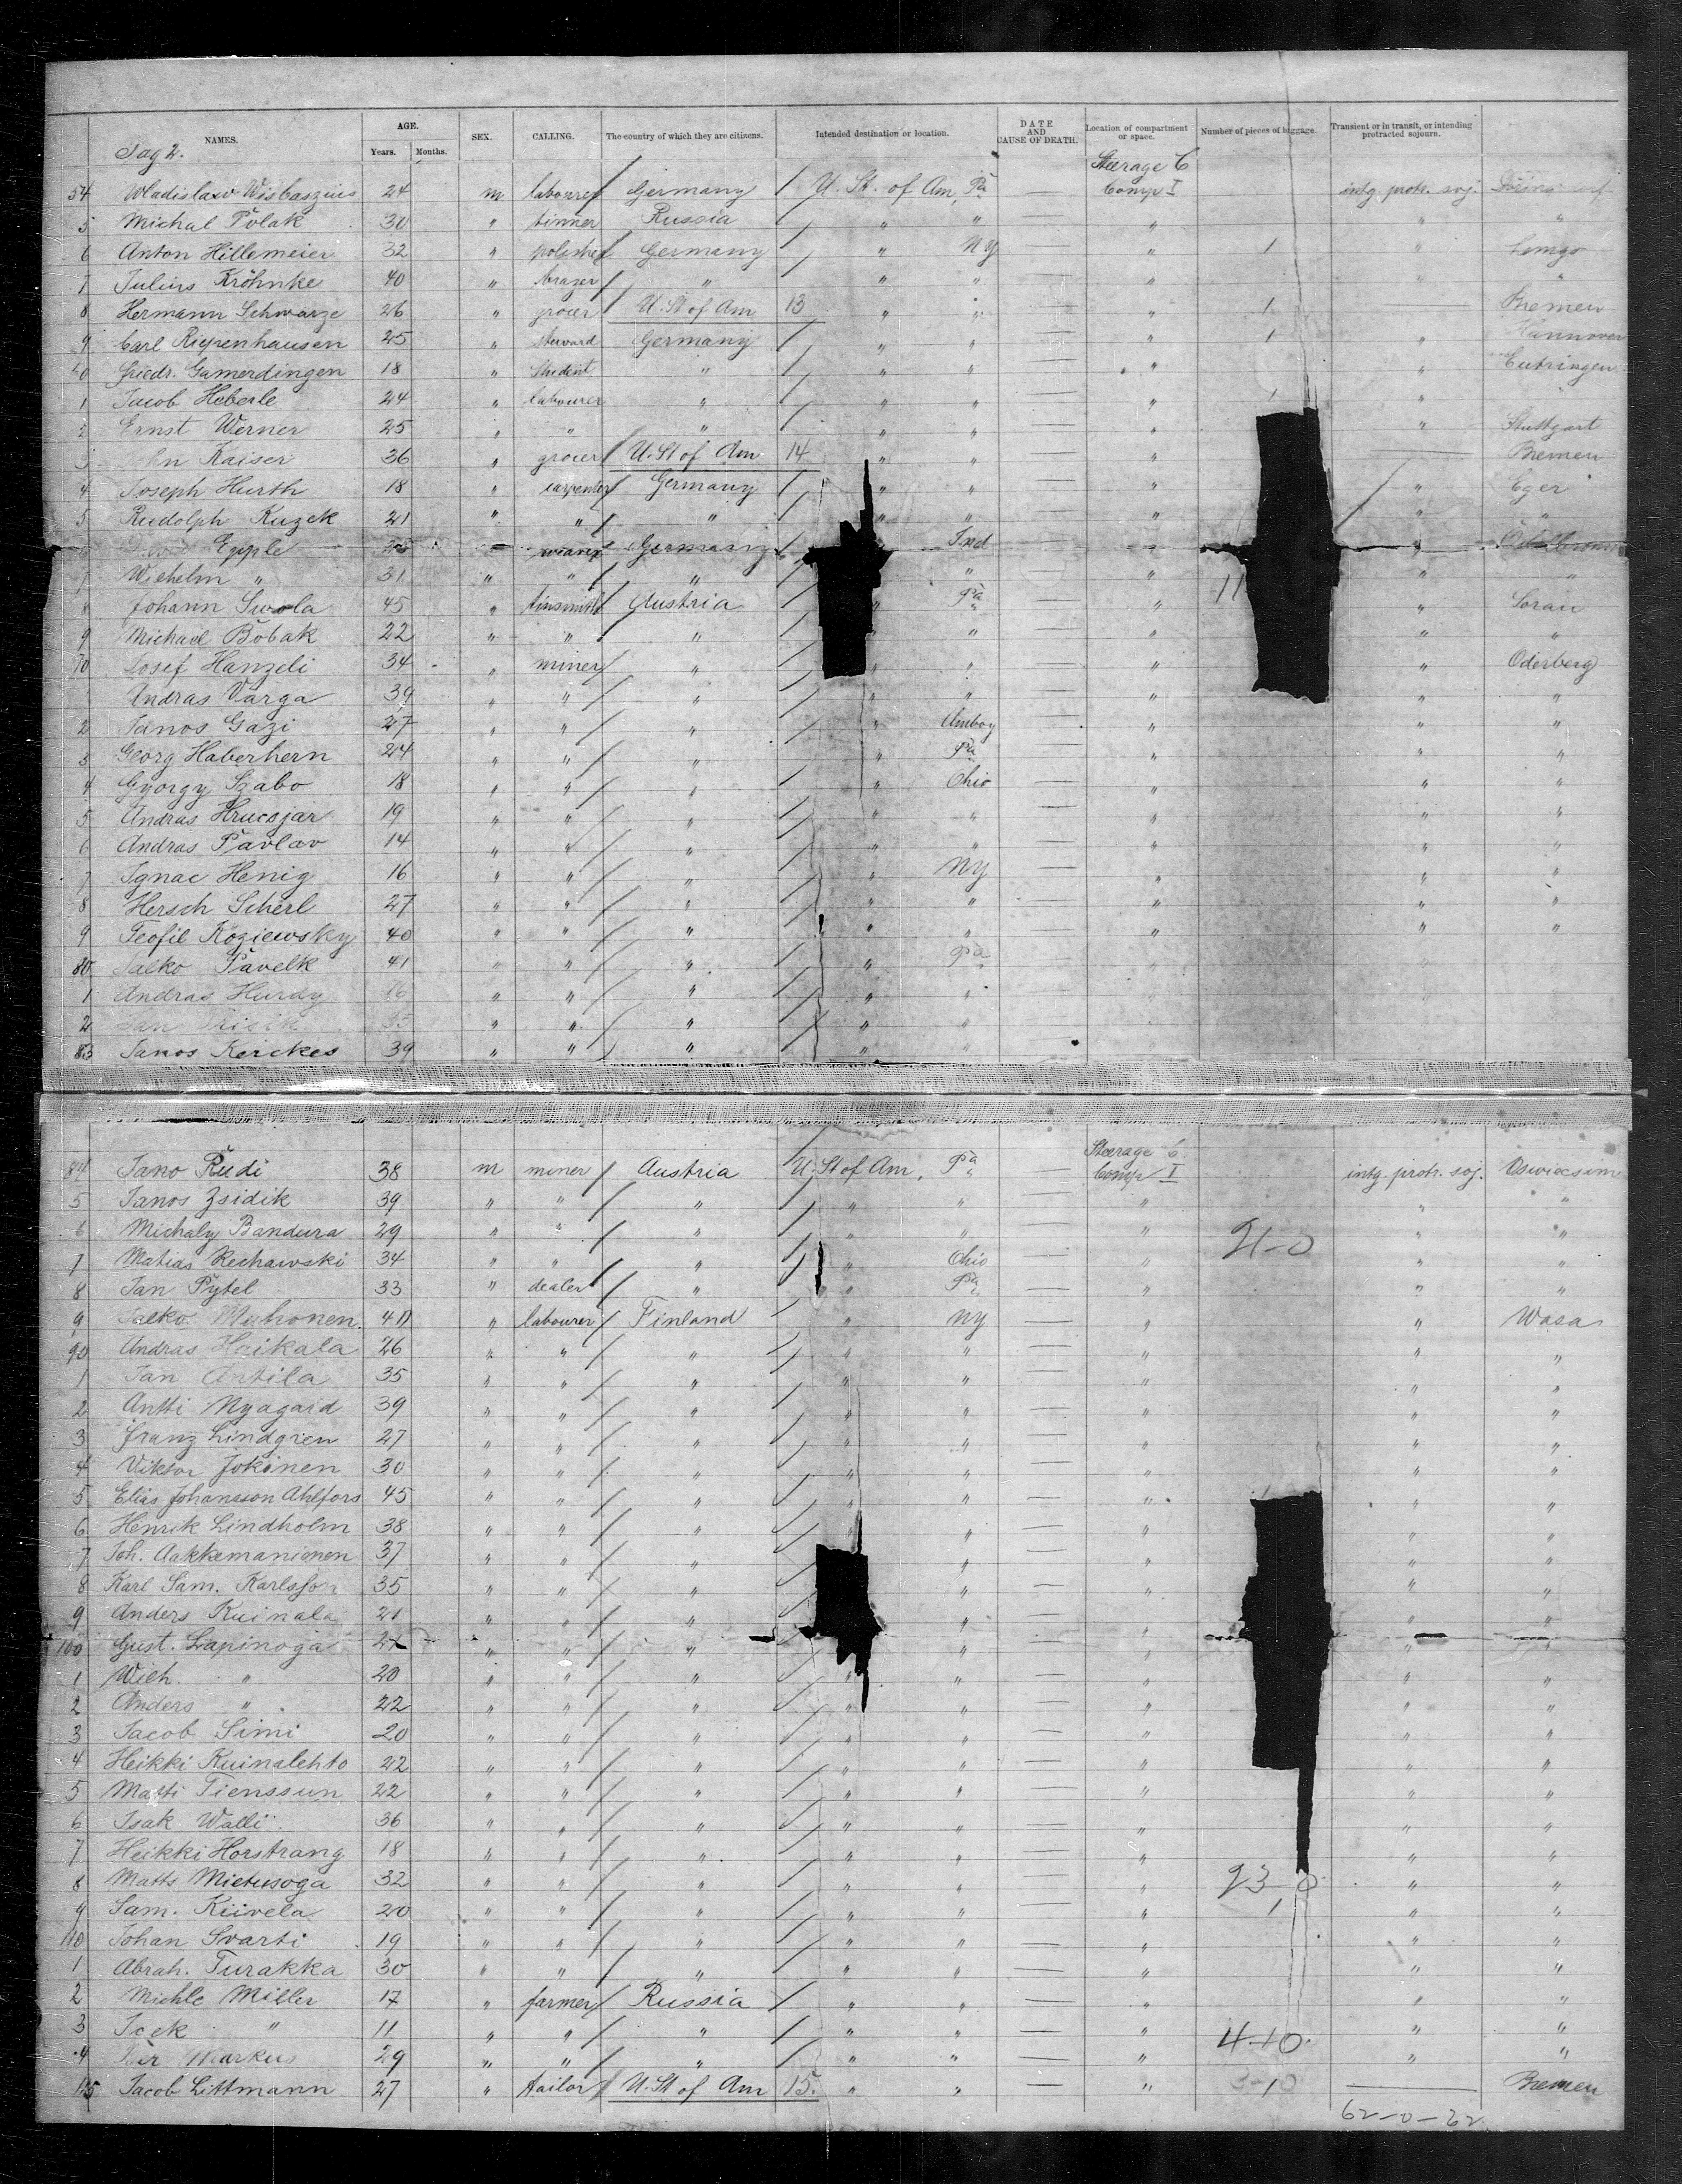 NAMES. AGE. Years. Months. SEX. CALLING. The country of which they are citizens. Intended destination or location. DATE AND CAUSE OF DEATH. Location of compartment or space. Number of pieces of baggage. Transient or in transit, or intending protracted sojourn.
Pag 2. Steerage C
54 Wladislaw 24 m labourer Germany U. St. of Am, Pa — Comp I intg. protr. soj.
5 Michal Polak 30 " tinner Russia " " — " " "
6 Anton Hillemeier 32 " polisher Germany " NY — " 1 " Lemgo
7 Julius Kröhnke 40 " brazer " " " — " " "
8 Hermann Schwarze 26 " grocer U. St of Am 13 " " — " 1 — Bremen
9 Carl Riepenhausen 25 " steward Germany " " — " 1 " Hannover
60 Friedr. Gamerdingen 18 " student " " " — " " Eutringen
1 Jacob Heberle 24 " labourer " " " — " 1 " "
2 Ernst Werner 25 " " " " " — " " Stuttgart
3 Kaiser 36 " grocer U. St of Am 14 " " — " — Bremen
4 Joseph Hurth 18 " carpenter Germany " " — " " Eger
5 Rudolph Kuzek 21 " " " " " — " " "
6 Epple 25 " weaver Germany Ind — " "
7 Wilhelm " 31 " " " " — " 11 " "
8 Johann Swola 45 " tinsmith Austria " Pa — " " Soran
9 Michael Bobak 22 " " " " — " " "
70 Josef Hanzeli 34 " miner " " — " " Oderberg
Andras Varga 39 " " " " " — " " "
2 Janos Gazi 27 " " " " Amboy — " " "
3 Georg Haberhern 24 " " " " Pa — " " "
4 György Szabo 18 " " " " Ohio — " " "
5 Andras Hrucsjar 19 " " " " " — " " "
6 Andras Pavlav 14 " " " " " — " " "
7 Ignac Henig 16 " " " " NY — " " "
8 Hersch Scherl 27 " " " " " — " " "
9 Teofil Koziewsky 40 " " " " " — " " "
80 Salko Pavelk 41 " " " " Pa — " "
1 Andras Hurdy 16 " " " " " — "
2 Jan 35 " " " " " — "
83 Janos Kerekes 39 " " " " " — "
84 Jano Rudi 38 m miner Austria U. St of Am, Pa — Steerage C Comp I intg. protr. soj. Oswiecsim
5 Janos Zsidik 39 " " " " " — " " "
6 Michaly Bandura 29 " " " " " — " 21-0 " "
7 Matias Rechawski 34 " " " " Ohio — " " "
8 Jan Pytel 33 " dealer " " Pa — " " "
9 Mahonen 40 " labourer Finland " NY — " " Wasa
90 Andras Haikala 26 " " " " " — " " "
1 Jan Antila 35 " " " " " — " " "
2 Antti Nyagard 39 " " " " " — " " "
3 Franz Lindgren 27 " " " " " — " " "
4 Viktor Jokinen 30 " " " " " — " " "
5 Elias Johansson Ahlfors 45 " " " " " — " " "
6 Henrik Lindholm 38 " " " " " — " " "
7 Joh. Aakkemanionen 37 " " " " — " " "
8 Karl Sam. Karlsson 35 " " " " — " " "
9 Anders Kuinala 21 " " " " — " " "
100 Gust. Lapinoja 27 " " " " — " " "
1 Wilh " 20 " " " " " — " " "
2 Anders " 22 " " " " " — " " "
3 Jacob Simi 20 " " " " " — " " "
4 Heikki Kuinalehto 22 " " " " " — " " "
5 Matti Tienssun 22 " " " " " — " " "
6 Isak Walli 36 " " " " " — " " "
7 Heikki Horstrang 18 " " " " " — " " "
8 Matts Mietusoga 32 " " " " " — " 23-0 " "
9 Sam. Kiivela 20 " " " " " — " 1 " "
110 Johan Svarti 19 " " " " " — " " "
1 Abrah. Turakka 30 " " " " " — " " "
2 Michle Miller 17 " farmer Russia " " — " " "
3 Icek " 11 " " " " " — " " "
4 Markus 29 " " " " " — " 4-10 " "
115 Jacob Littmann 27 " tailor U. St of Am 15. " " — " — Bremen
62-0-62